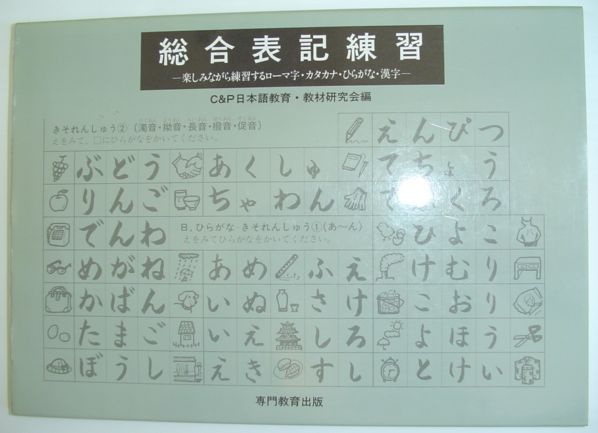 総合表記練習
―楽しみながら練習するローマ字・カタカナ・ひらがな・漢字―
C&P日本語教育・教材研究会編
きそれんしゅう② (濁音・拗音・長音・撥音・促音)
えをみて、□にひらがなをかいてください。
えんぴつ
ぶどう あくしゅ てちょう
りんご ちゃわん てぶくろ
でんわ
B, ひらがな きそれんしゅう①(あ〜ん)
えをみてひらがなをかいてください。
ひよこ
めがね あめ ふえ けむり
かばん いぬ さけ こおり
たまご いえ しろ よほう
ぼうし えき すし とけい
専門教育出版